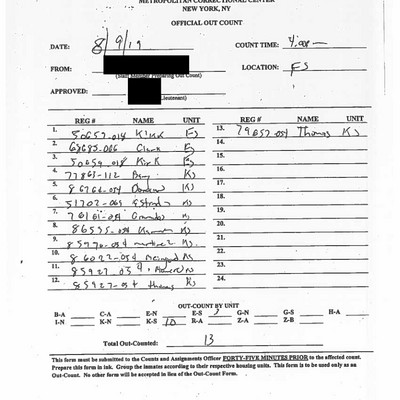 METROPOLITAN CORRECTIONAL CENTER
NEW YORK, NY
OFFICIAL OUT COUNT
DATE: 8/9/19 COUNT TIME: 4:00pm
FROM: LOCATION: FS
(Staff Member Preparing Out Count)
APPROVED:
(Lieutenant)
REG # NAME UNIT REG # NAME UNIT
1. ES 13. 79657-054 Thomas KS
2. 68683-066 Clark ES 14.
3. 50659-018 Kirk ES 15.
4. 77863-112 KS 16.
5. KS 17.
6. 51702-069 Estrada KS 18.
7. KS 19.
8. KS 20.
9. 85976-054 Martinez KS 21.
10. 86022-054 KS 22.
11. 85927-054 KS 23.
12. KS 24.
OUT-COUNT BY UNIT
B-A C-A E-N E-S 3 G-N G-S H-A
I-N K-N K-S 10 R-A Z-A Z-B
Total Out-Counted: 13
This form must be submitted to the Counts and Assignments Officer FORTY-FIVE MINUTES PRIOR to the affected count.
Prepare this form in ink. Group the inmates according to their respective housing units. This form is to be used only as an
Out-Count. No other form will be accepted in lieu of the Out-Count Form.